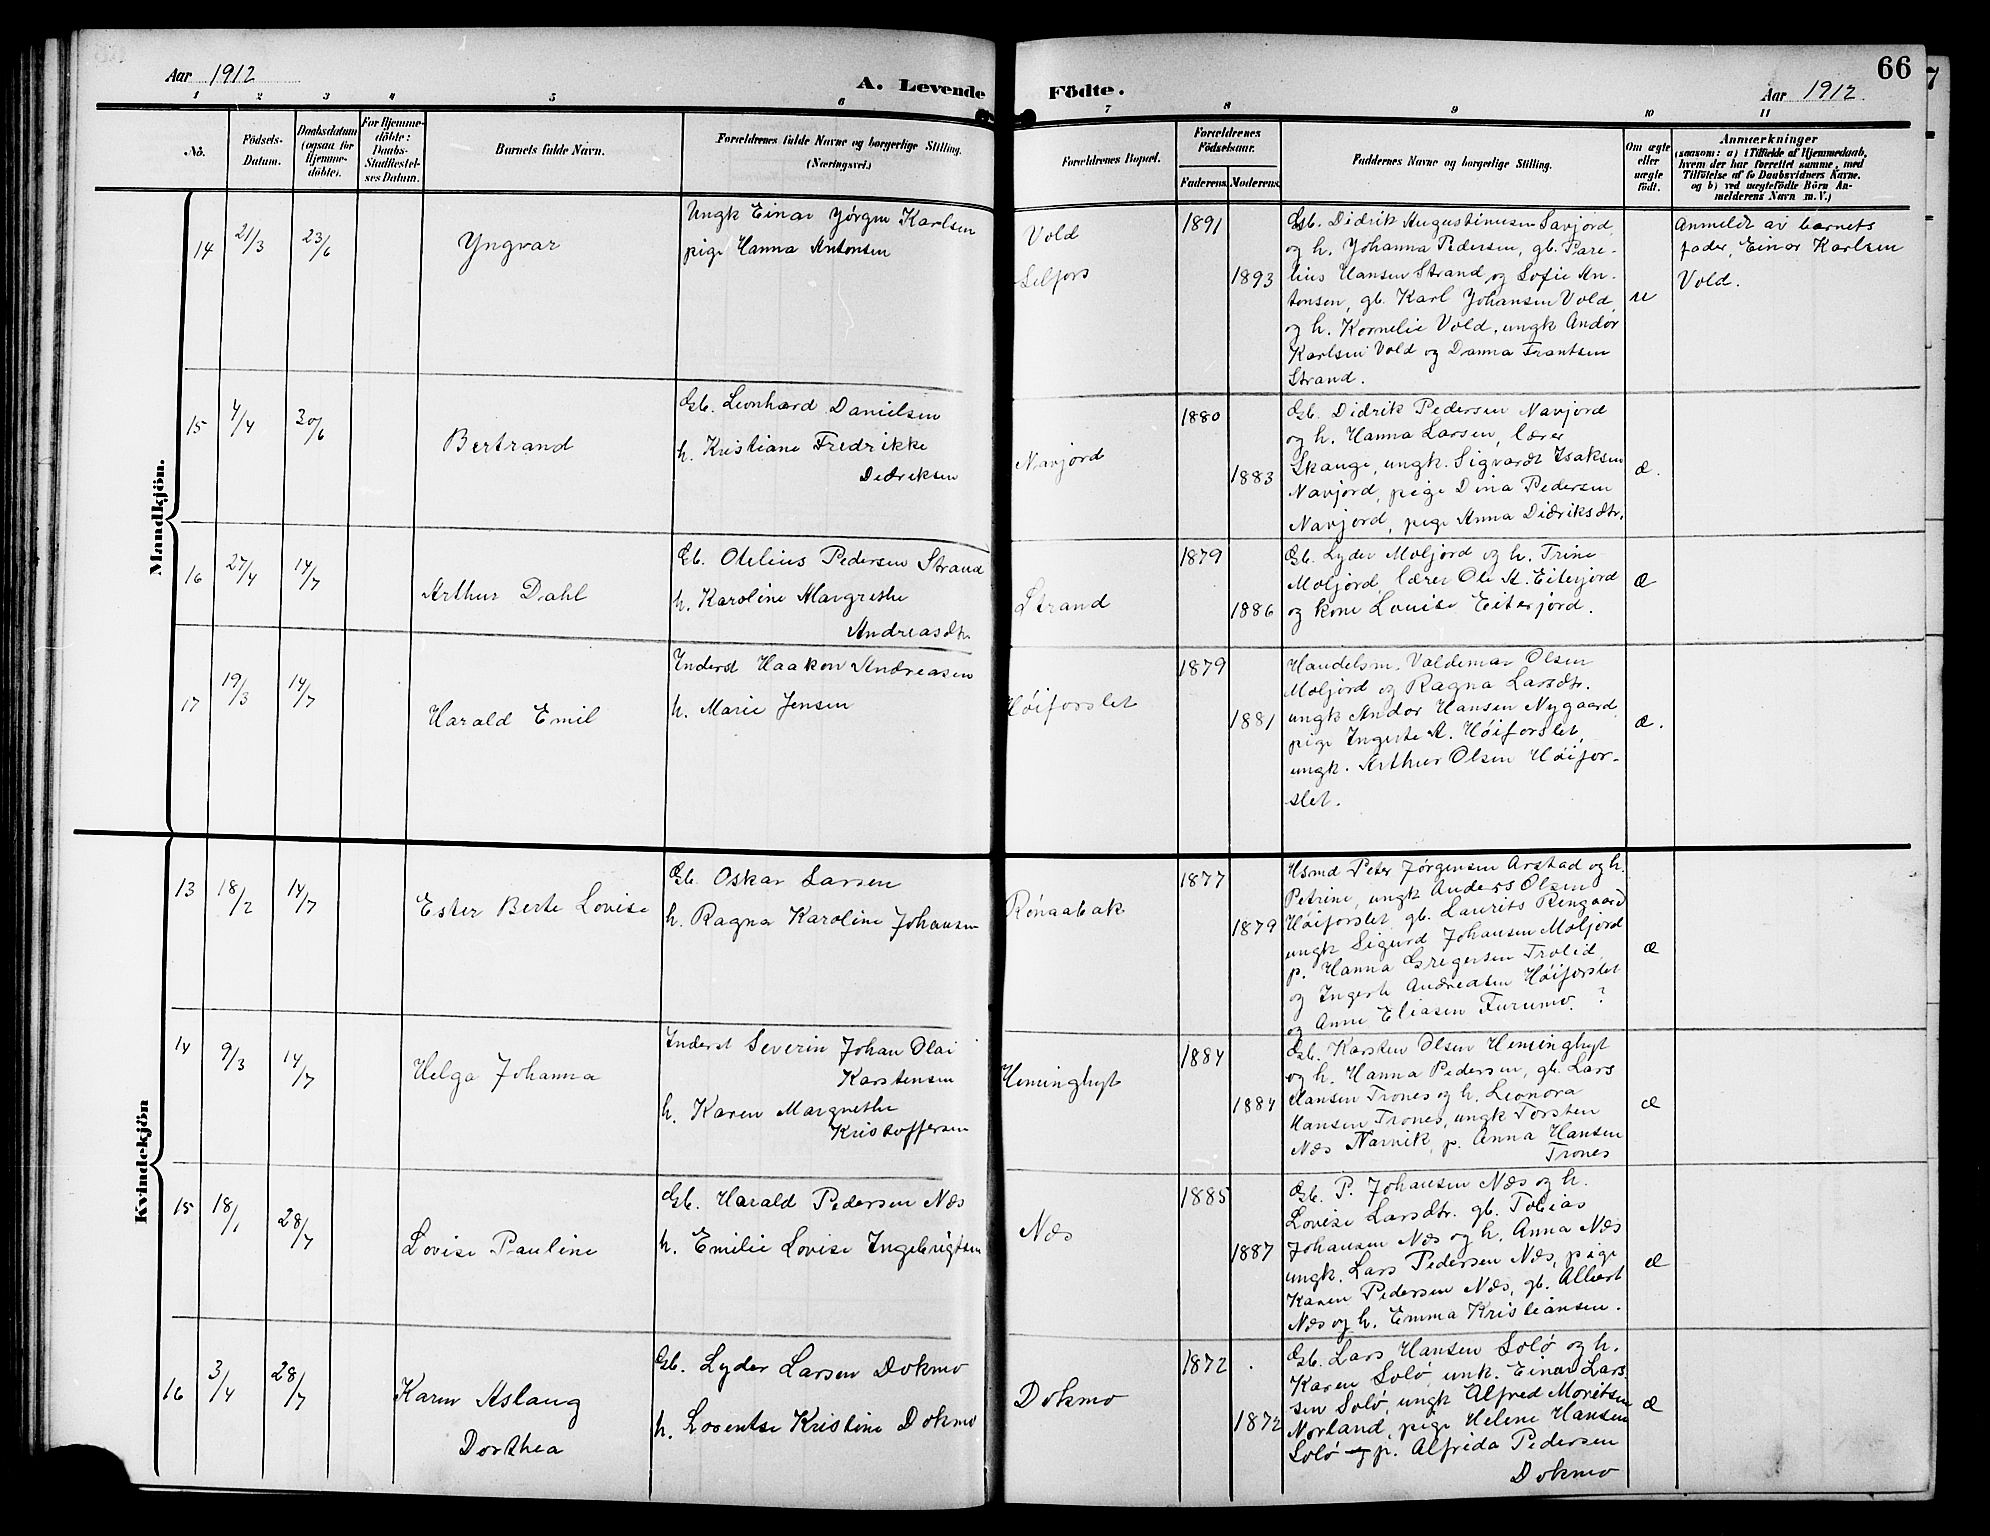 Aar 1912
A. Levende
1 2 3 4 5 6
No.
Födsels-
Datum.
Daabsdatum
(ogsaa for
Hjemme-
döbte).
For Hjemme-
döbte:
Daabs-
Stadfæstel-
ses Datum.
Barnets fulde Navn.
Forældrenes fulde Navne og borgerlige Stilling.
(Næringsvei.)
Mandkjön.
14 21/3 23/6
Yngvar
Ungk Einar Jørgen Karlsen
pige Hanna Antonsen
15 4/4 30/6
Bertrand
Gb. Leonhard Danielsen
h. Kristiane Fredrikke
Didriksen
16 27/4 14/7
Arthur Dahl
Gb. Otelius Pedersen Strand
h. Karoline Margrethe
Andreasdtr.
17 19/3 14/7
Harald Emil
Inderst Haakon Andreasen
h. Marie Jensen
Kvindekjön
13 18/2 14/7
Ester Berte Lovise
Gb. Oskar Larsen
h. Ragna Karoline Johansen
14 9/3 14/7
Helga Johanna
Inderst Severin Johan Olai
Karstensen
h. Karen Margrethe
Kristoffersen
15 18/1 28/7
Lovise Pauline
Gb. Harald Pedersen Næs
h. Emilie Lovise Ingebrigtsen
16 3/4 28/7
Karen Aslaug
Dorthea
Gb. Lyder Larsen Dokmo
h. Loventse Kristine Dokmo
66
Födte.
Aar 1912
7 8 9 10 11
Forældrenes Bopæl.
Forældrenes
Födselsaar.
Faderens. Moderens.
Faddernes Navne og borgerlige Stilling.
Om ægte
eller
uægte
født.
Anmærkninger
(saasom: a) i Tilfælde af Hjemmedaab,
hvem der har forrettet samme, med
Tilföielse af to Daabsvidners Navne.
og b) ved uægtefödte Börn An-
melderens Navn m. V.)
Vold
Selfors
1891
1893
Gb. Didrik Augustinusen Savjord,
og h. Johanna Pedersen, gb. Pare-
lius Hansen Strand og Sofie An-
tonsen, gb. Karl Johansen Vold
og h. Kornelie Vold, ungk Andor
Karlsen Vold og Danna Frantsen
Strand.
u
Anmeldt av barnets
fader, Einar Karlsen
Vold.
Navjord
1880
1883
Gb. Didrik Pedersen Navjord
og h. Hanna Larsen, lærer
Skauge, ungk. Sigvardt Isaksen
Navjord, pige Dina Pedersen
Navjord, pige Anna Didriksdtr.
æ.
Strand
1879
1886
Gb. Lyder Moljord og h. Trine
Moljord, lærer Ole A. Eiterjord
og kone Louise Eiterjord.
æ
Høiforslet
1879
1881
Handelsm. Valdemar Olsen
Moljord og Ragna Larsdtr.
ungk Andor Hansen Nygaard,
pige Ingerte A. Høiforslet,
ungk. Arthur Olsen Høifor-
slet.
æ.
Rønaabak
1877
1879
Hsmd Peter Jørgensen Arstad og h.
Petrine, ungk Anders Olsen
Høiforslet, gb. Laurits Rengaard
ungk Sigurd Johansen Moljord
p. Hanna Gregersen Trolid,
og Ingerte Andreasen Høiforslet
og Anne Eliasen Furumo. ?
æ
Heminghyt
1884
1884
Gb. Karsten Olsen Heminghyt
og h. Hanna Pedersen, gb. Lars
Hansen Trones og h. Leonora
Hansen Trones, ungk Torsten
Næs Narvik, p. Anna Hansen
Trones
æ
Næs
1885
1887
Gb. P. Johansen Næs og h.
Lovise Larsdtr. gb. Tobias
Johansen Næs og h. Anna Næs
ungk. Lars Pedersen Næs, pige
Karen Pedersen Næs, gb. Albert
Næs og h. Emma Kristiansen.
æ
Dokmo
1872
1872
Gb. Lars Hansen Solø og h.
Karen Solø unk. Einar Lar-
sen Solø, ungk Alfred Moritsen
Norland, pige Helene Hansen
Solø og p. Alfrida Pedersen
Dokmo
æ